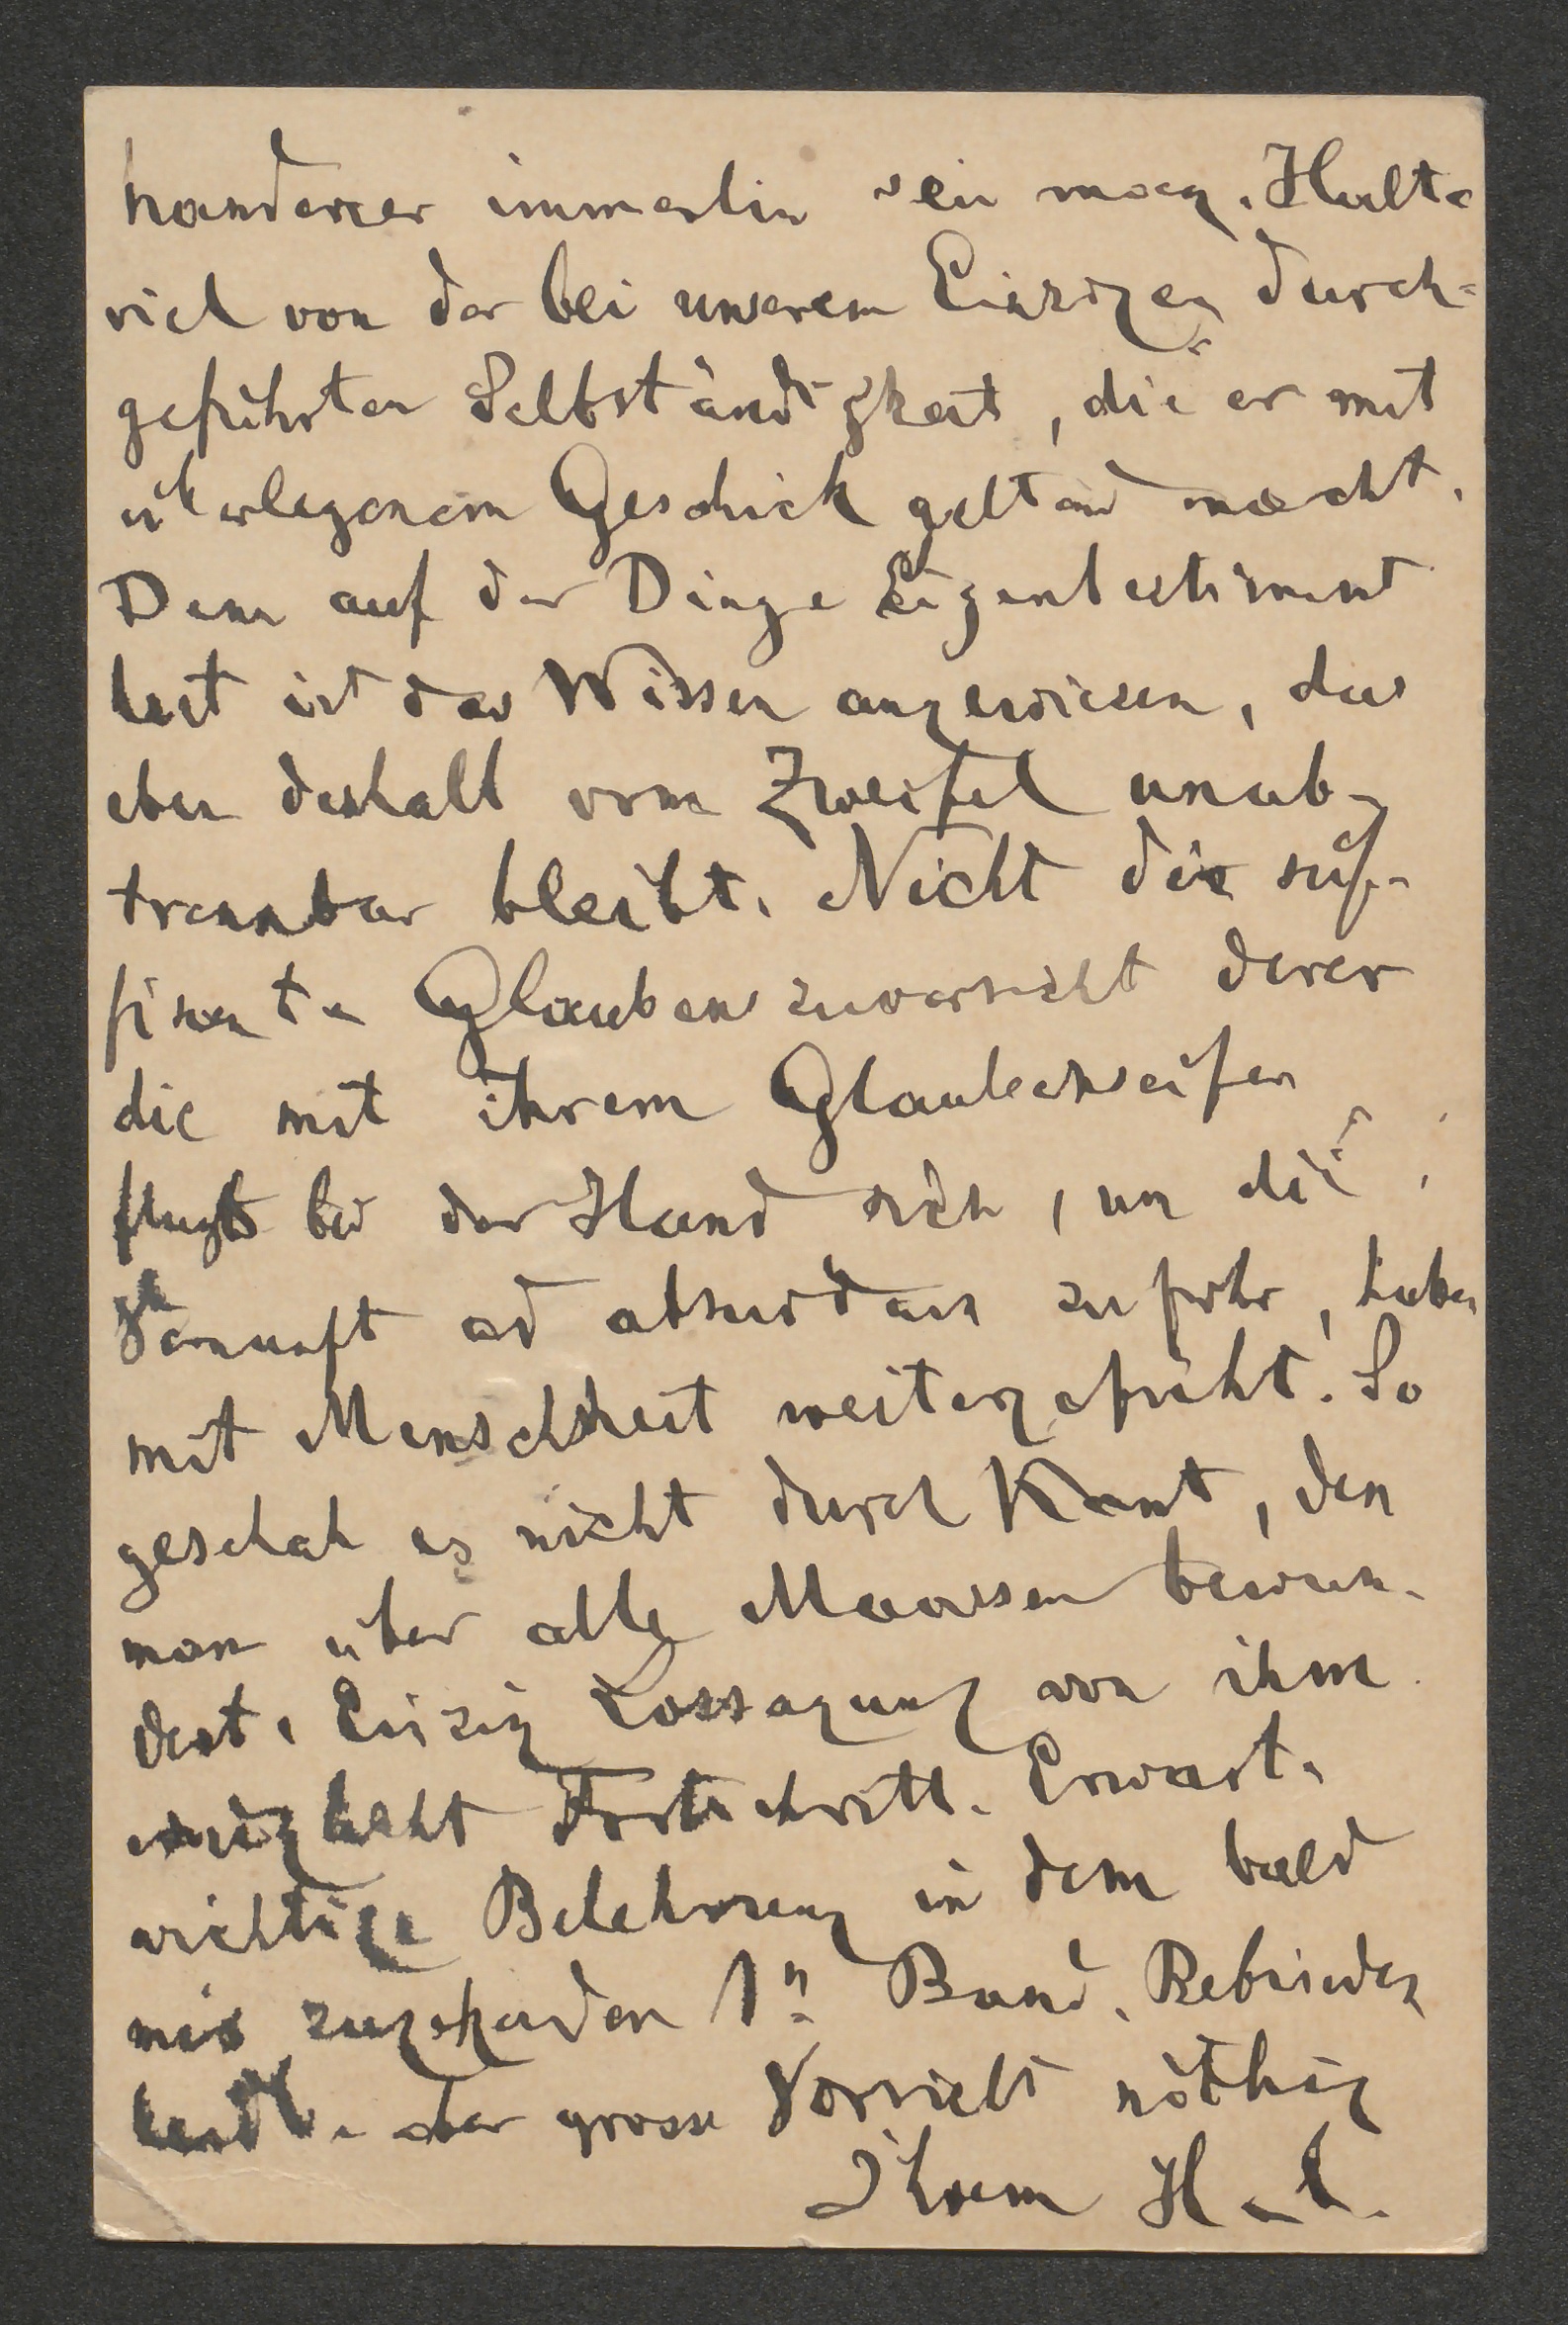 handener immerhin sein mag. Halte
viel von der bei unserem Einzigen durch-
geführten Selbständigkeit, die er mit
überlegenem Geschick geltend macht.
Denn auf der Dinge Eigenbestimmt
heit ist das Wissen angewiesen, das
eben deshalb vom Zweifel unab-
trennbar bleibt. Nicht die süf-
fisante Glaubenszuversicht derer
die mit ihrem Glaubenseifer
flugs bei der Hand sich, um die
Vernunft ad absurdum zu führ, haben
mit Menschheit weitergeführt. So
geschah es nicht durch Kant, den
man über alle Maassen bewun-
dert. Einzig Lossagung von ihm
Fortschritt. Erwarte
wichtige Belehrung in dem bald
mir zugehenden 1n Band.
der grosse Vorsicht nöthig
Ihrem